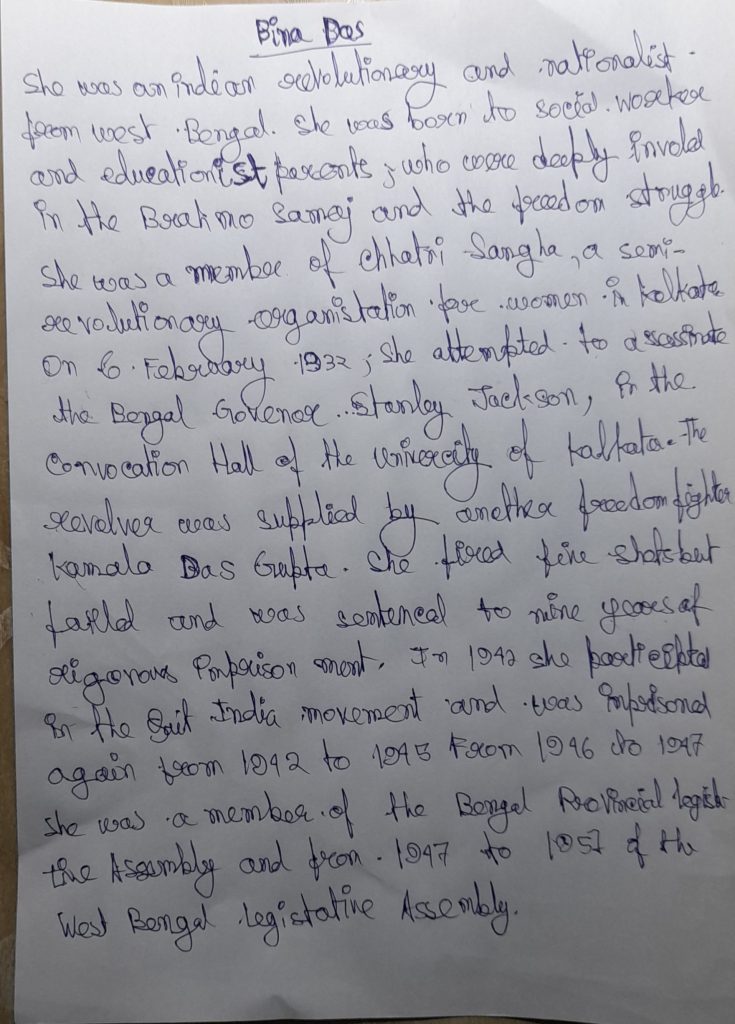 Bina Das
She was an indian revolutionary and nationalist.
from west Bengal. She was born to social worker
and educationist parents, who were deeply involed
in the Brahmo Samaj and the freedom struggle.
She was a member of chhatri Sangha, a semi-
revolutionary organistation for women in kolkata
On 6 February 1932, she attempted to assassinate
the Bengal Govenor Stanley Jackson, in the
Convocation Hall of the univercity of kalkata. The
revolver was supplied by another freedom fighter
kamala Das Gupta. She fired five shots but
failed and was sentencal to nine years of
rigorous imprison ment. In 1942 she participted
in the Quit India movement and was imprisond
again from 1942 to 1945 From 1946 to 1947
she was a member of the Bengal Provincial legisla
tive Assembly and from 1947 to 1951 of the
West Bengal Legistative Assembly.